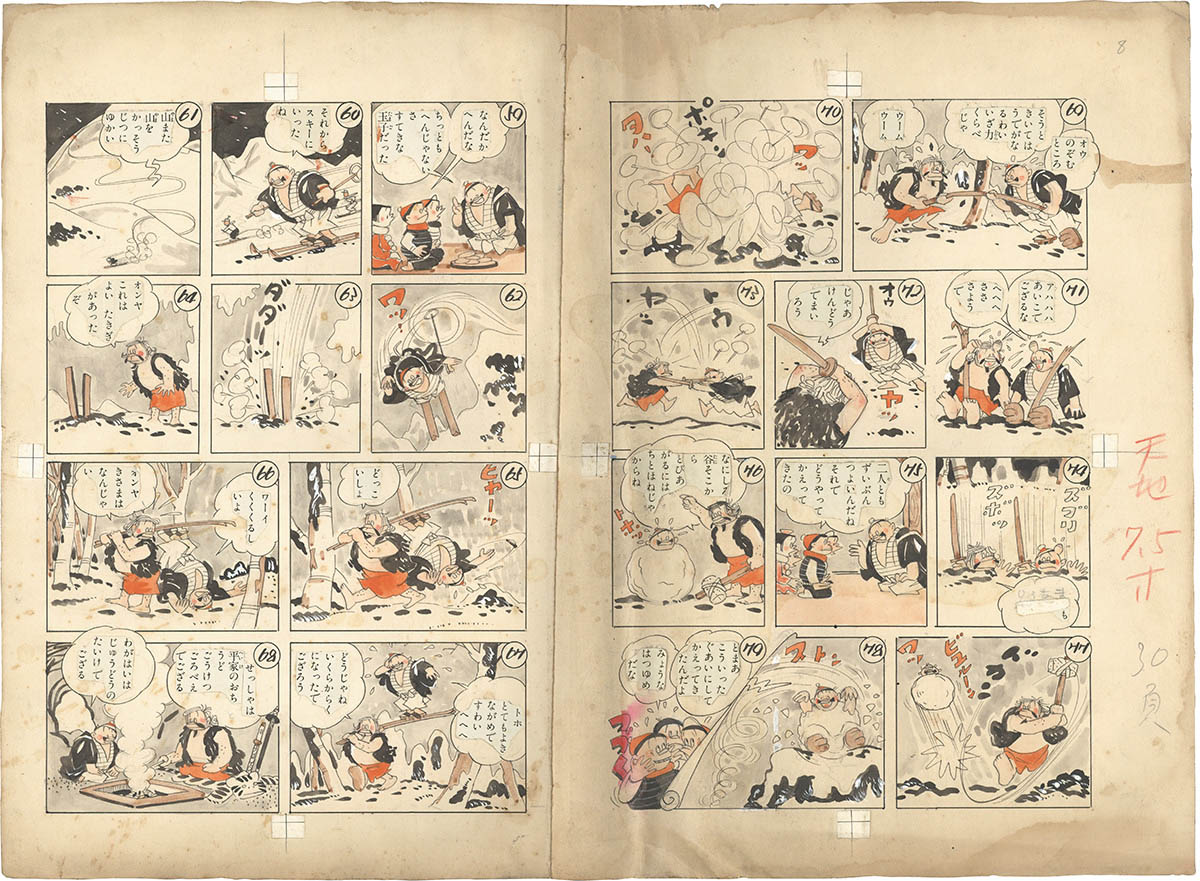 59
なんだか
へんだな
ちっとも
へんじゃない
さ
すてきな
玉子だった
60
それから
スキーに
いった
ね
61
山また
山を
かっそう
じつに
ゆかい
62
ワッ
63
ダダーッ
64
オンヤ
これは
よい たきぎ
があった
ぞ
65
ヒャーッ
どっこ
いしょ
66
ワーイ
くくくるし
いよ
オンヤ
きさまは
なんじゃ
い
67
トホ
とてもよさ
ながめで
すわい
へへ
どうじゃね
いくらからく
になったで
ござろう
68
せっしゃは
平家のおち
うど
ごうけつ
ごろべえ
でござる
わがはいは
じゅうどうの
たいけで
ござる
69
オウ
のぞむ
ところ
そうと
きいては
うでがな
るわい
いざ力
くらべ
じゃ
ウーム
ウーム
70
ポキン
ワッ
タハ
71
アハハハ
あいこで
ござるな
へへへ
ささ
さよう
で
72
オウ
じゃあ
けんどう
でまい
ろう
ニヤッ
73
トウ
ヤッ
74
ズブリ
ズボッ
も
75
二人とも
ずいぶん
つよいんだね
それで
どうやって
かえって
きたの
76
なにしろ
谷そこか
ら
とびあ
がるには
ちとほねじゃ
からね
トホ
77
ビューン
ガーイ
ワッ
78
ストン
79
とまあ
こういった
ぐあいにして
かえってき
たんだよ
みょうな
はつゆめ
だな
8
天地
7.5
寸
30頁